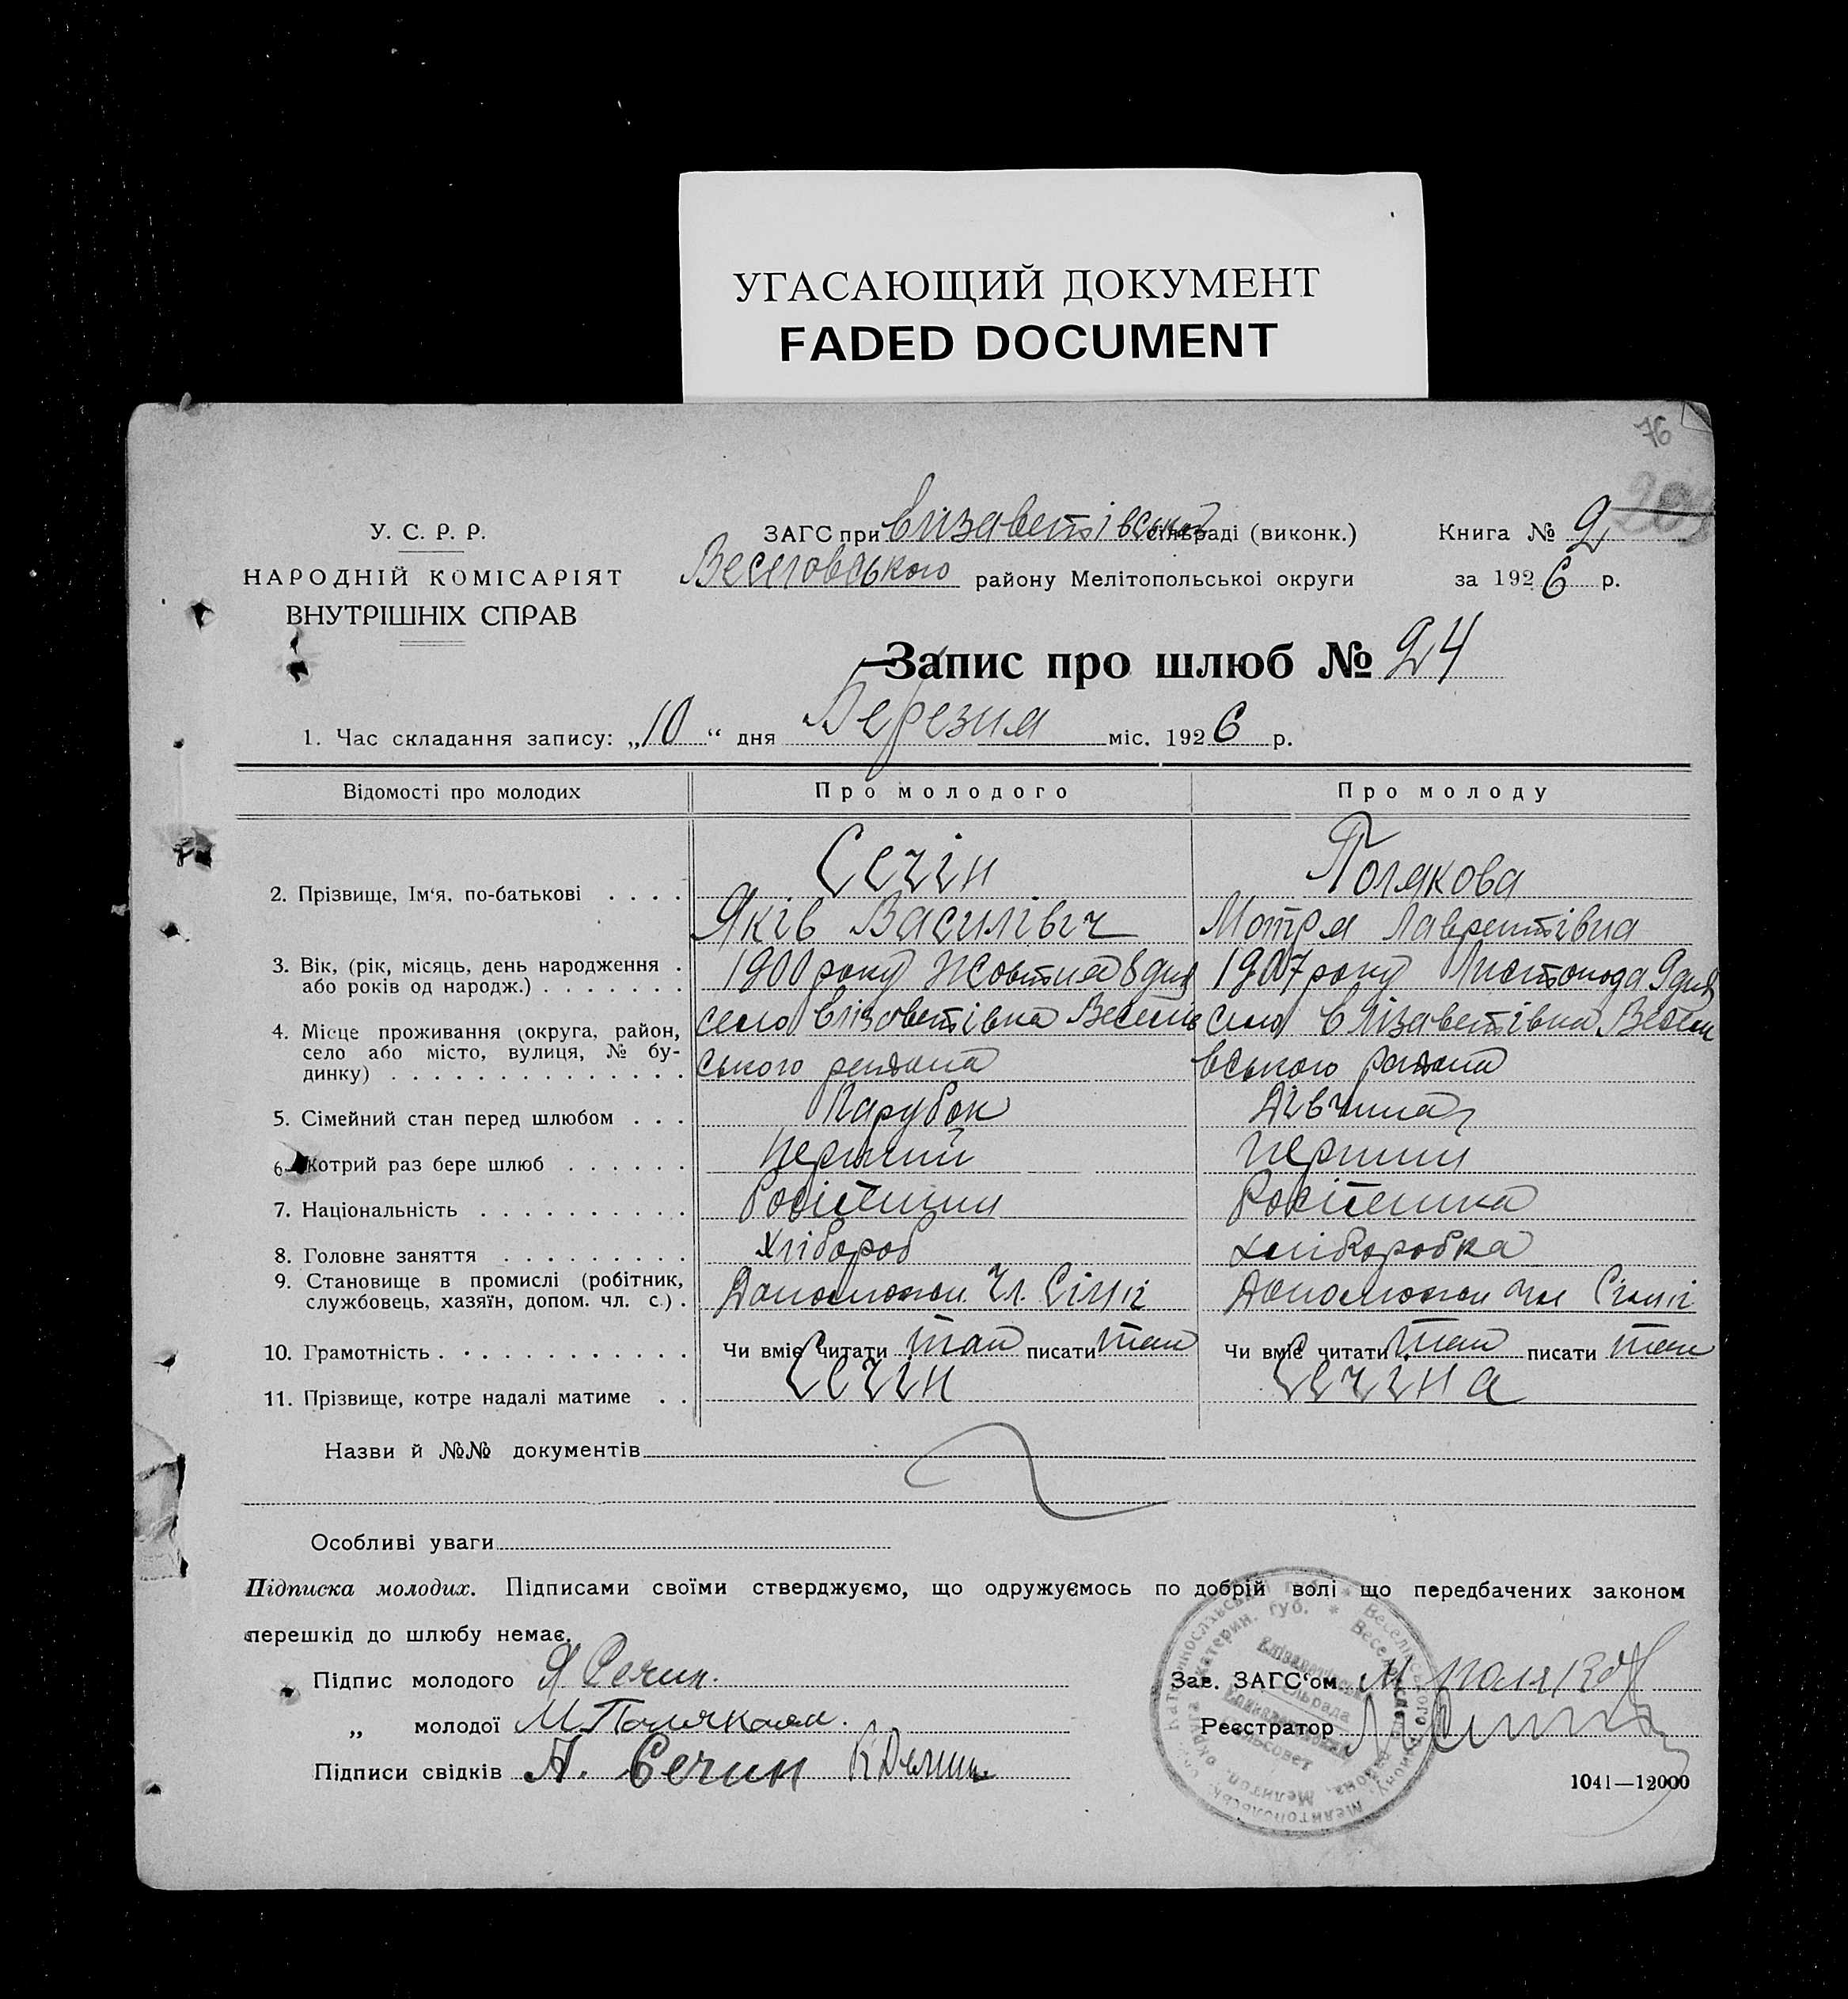 УГАСАЮЩИЙ ДОКУМЕНТ
FADED DOCUMENT
76
209
У. С. Р. Р.
НАРОДНІЙ КОМІСАРІЯТ
ВНУТРІШНІХ СПРАВ
ЗАГС при Єлізаветівській сільраді (виконк.)
Веселовського району Мелітопольської округи
Книга № 2
за 1926 р.
Запис про шлюб № 24
1. Час складання запису: „10“ дня Березня міс. 1926 р.
Відомості про молодих Про молодого Про молоду
2. Прізвище, Ім‘я, по-батькові . . . . Сечін Полякова
Яків Василівич Мотря Лаврентівна
3. Вік, (рік, місяць, день народження . або років од народж.) . . . . . . . 1900 року Жовтня 8 дня 1907 року Листопода 9 дня
4. Місце проживання (округа, район, село або місто, вулиця, № будинку) . . . . . . . . . . . . . . село Єлізоветівка Веселівського района село Єлізаветівка Веселівського района
5. Сімейний стан перед шлюбом . . . Парубок Дівчина
6. Котрий раз бере шлюб . . . . . . Перший Перший
7. Національність . . . . . . . . . . Росіянин Росіянка
8. Головне заняття . . . . . . . . . Хлібороб Хліборобка
9. Становище в промислі (робітник, службовець, хазяїн, допом. чл. с.) . Допоможн. Чл. Сімії Допоможн Чл Сімії
10. Грамотність . . . . . . . . . . . . Чи вміє читати так писати так Чи вміє читати так писати так
11. Прізвище, котре надалі матиме . . Сечін Сечіна
Назви й №№ документів
Особливі уваги
Підписка молодих. Підписами своїми стверджуємо, що одружуємось по добрій волі що передбачених законом
перешкід до шлюбу немає.
Підпис молодого Я Сечин.
„ молодої М Полякова.
Підписи свідків А. Сечин
Зав. ЗАГС‘ом М Поляков
Реєстратор
1041—12000